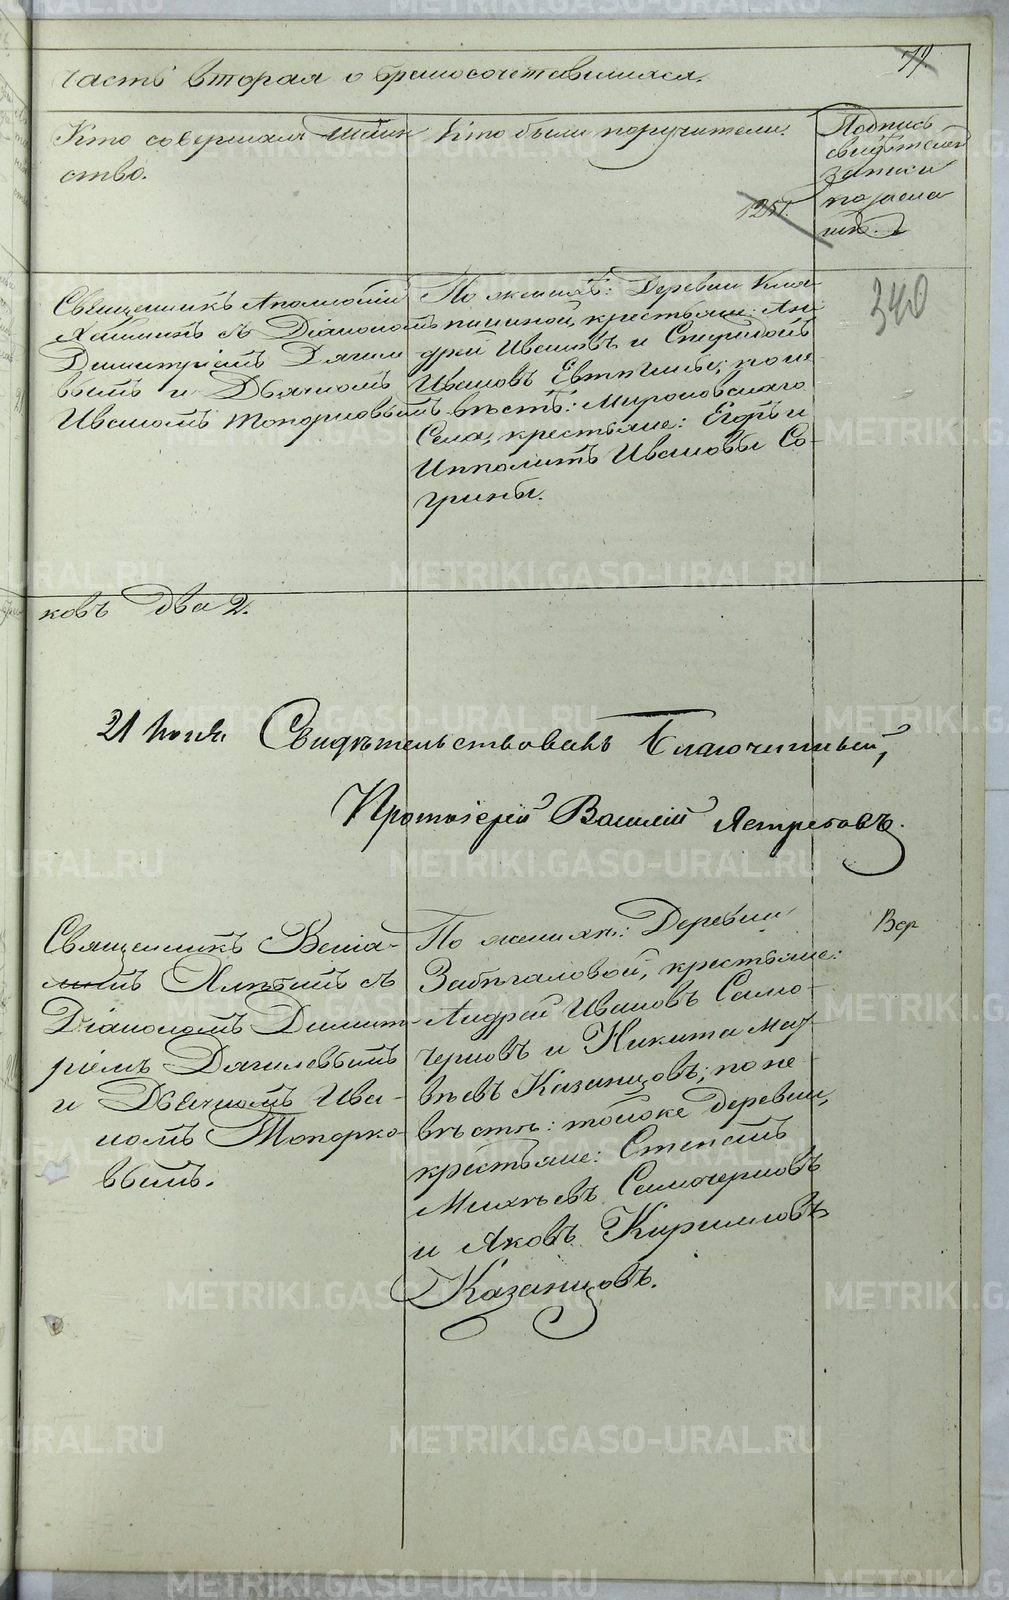 Часть вторая о бракосочетавшихся.
Кто совершалъ таин
ство.
Кто были поручители.
Подпись
свидѣтелей
записи
по жела
нію.
340
Священникъ Аполлоній
съ Діакономъ
Димитріемъ Дягиле
вымъ и Дьячкомъ
Иваномъ Топорковымъ
По женихѣ: Деревни
крестьяне: Ан
дрей Ивановъ и
Ивановъ по не
вѣстѣ: Мироновскаго
Села, крестьяне: Егоръ и
Ипполитъ Ивановы Со-
грины.
ковъ два 2.
21 Іюля. Свидѣтельствовалъ Благочинный,
Протоіерей Василій Ястребовъ.
Священникъ Веніа-
минъ съ
Діакономъ Димит-
ріемъ Дягилевымъ
и Дьячкомъ Ива-
номъ Топорко
вымъ.
По женихѣ: Деревни
крестьяне:
Андрей Ивановъ Само-
черновъ и Никита Мат
вѣевъ Казанцовъ; по не
вѣстѣ: тойже деревни,
крестьяне: Степанъ
Самочерновъ
и Яковъ Кирилловъ
Казанцовъ.